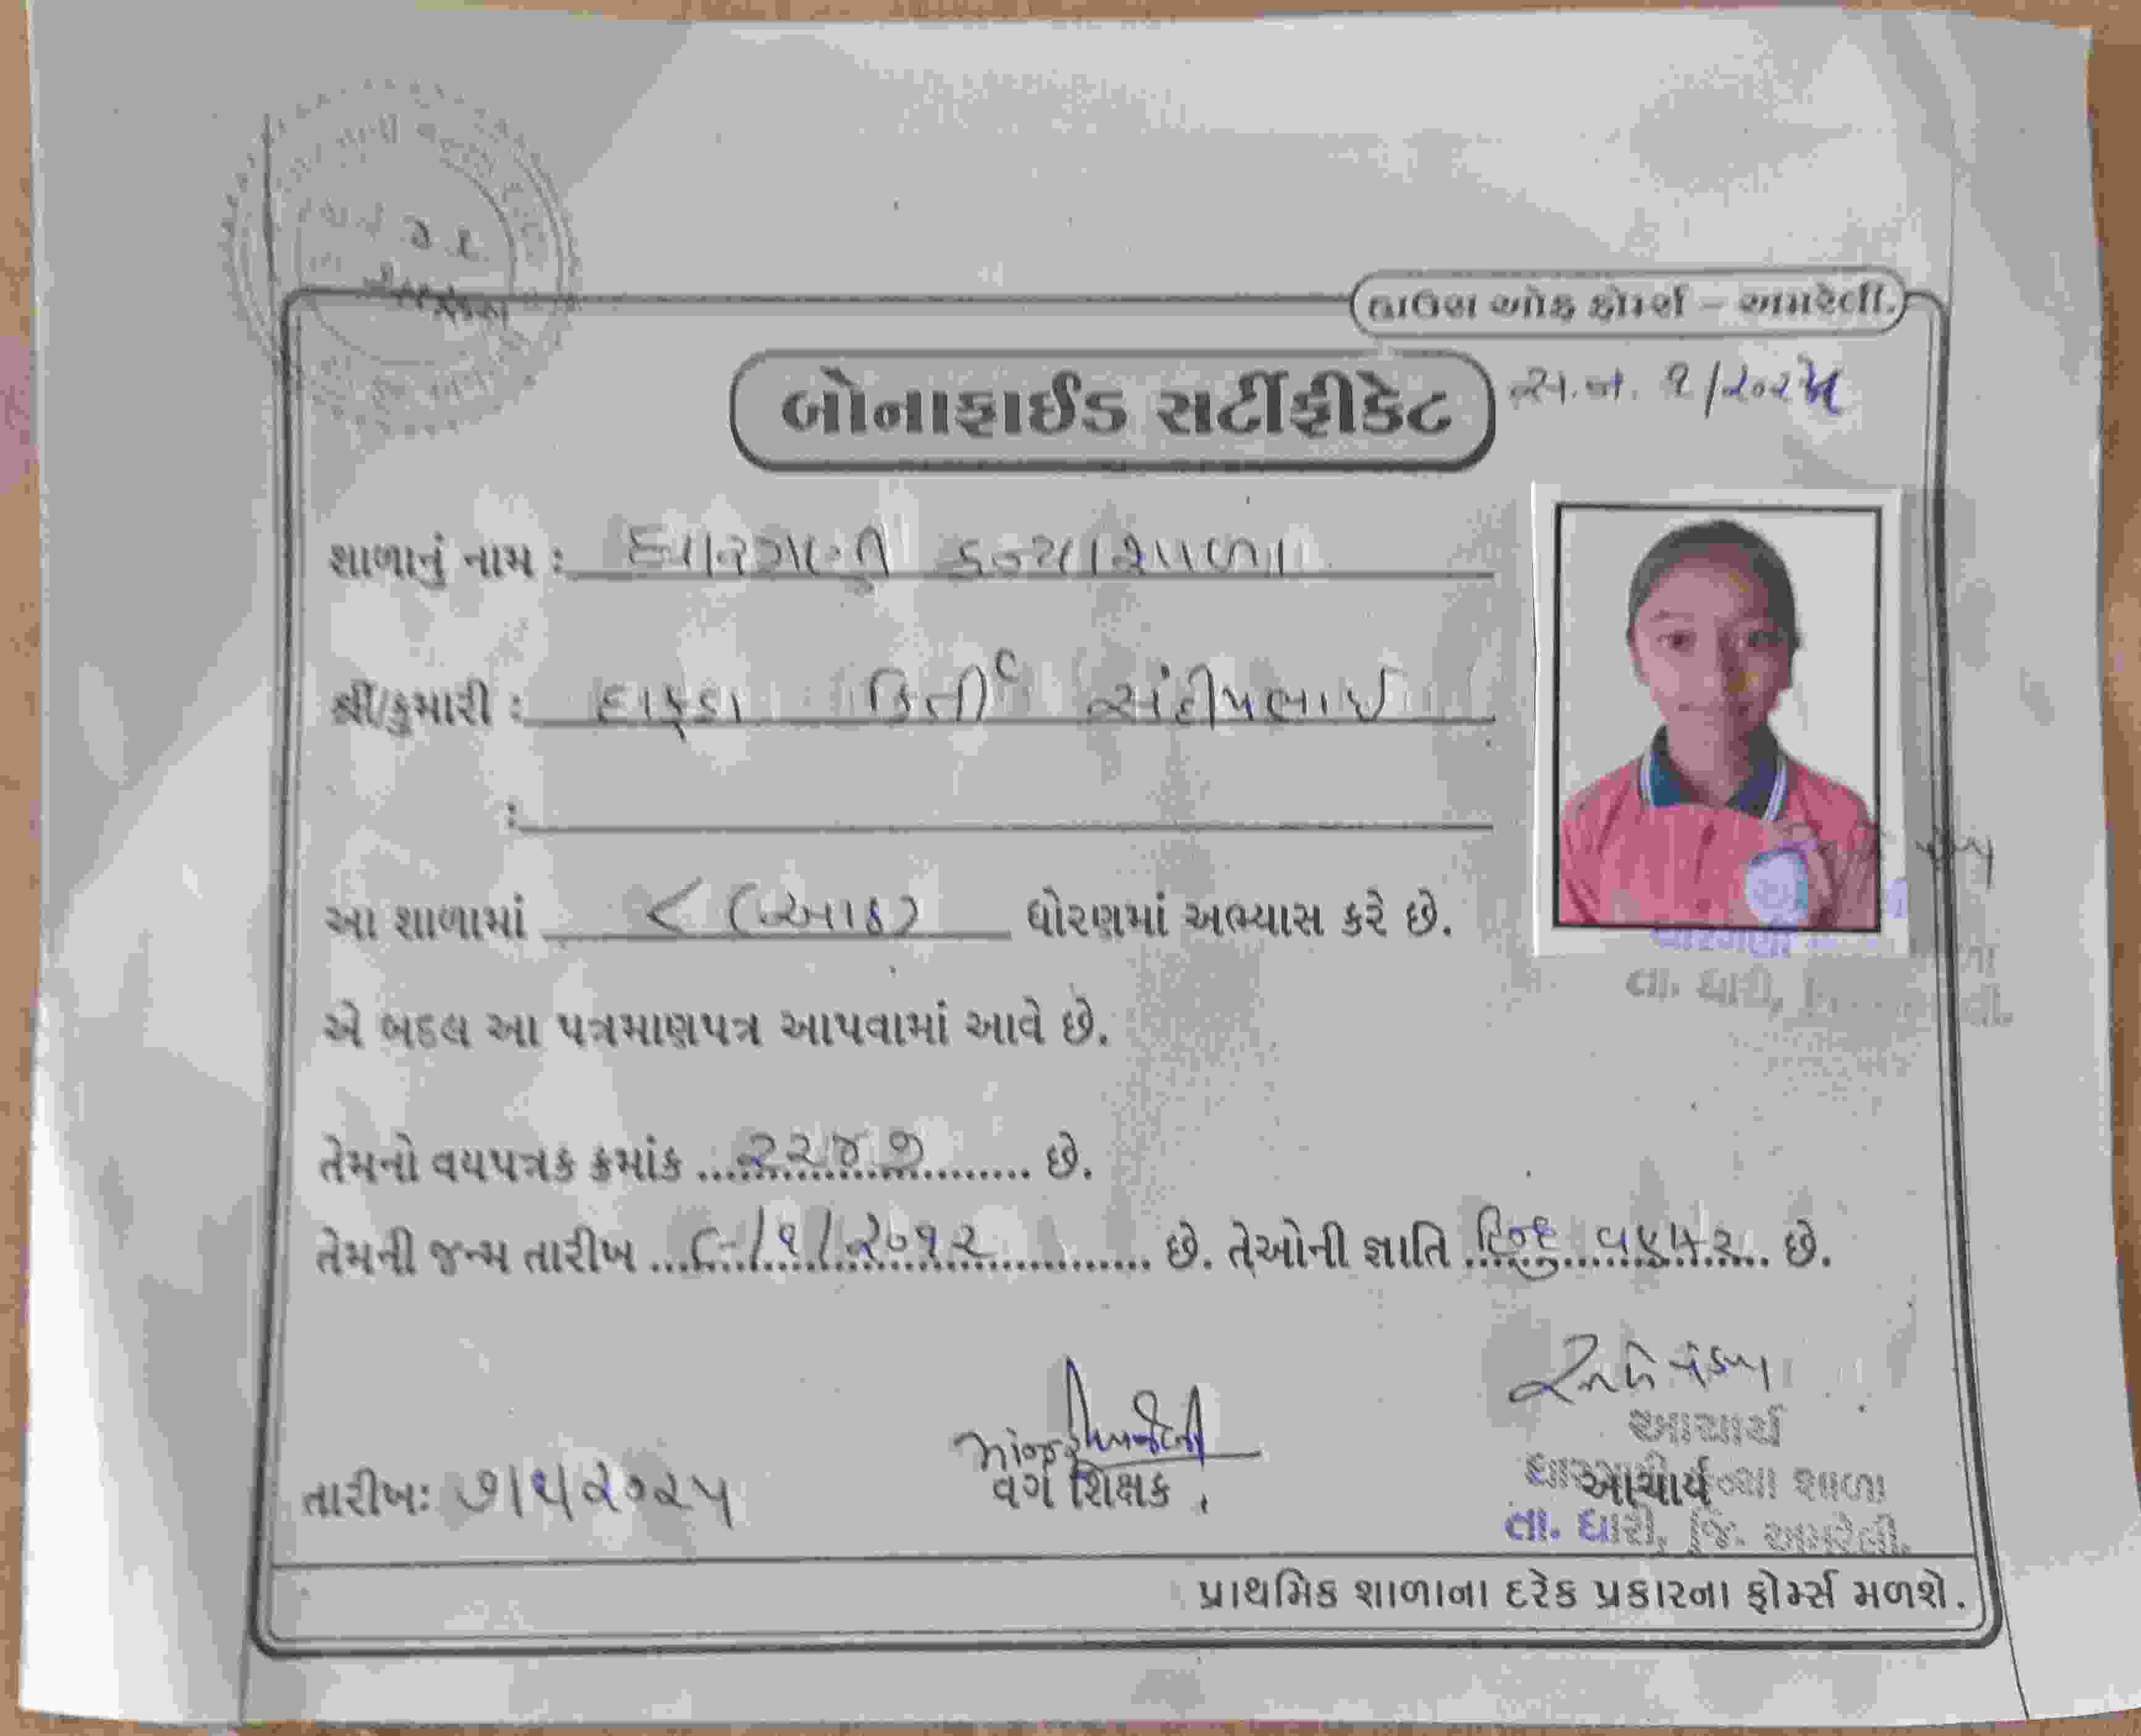 હાઉસ ઓફ ફોર્મર્સ – અમરેલી.
બોનાફાઈડ સર્ટીફીકેટ
શાળાનું નામ : ધારગણી કન્યાશાળા
શ્રી/કુમારી : દાફડા કિર્તી સંદીપભાઈ
:
આ શાળામાં ૮ (આઠ) ધોરણમાં અભ્યાસ કરે છે.
એ બદલ આ પત્રમાણપત્ર આપવામાં આવે છે.
તેમનો વયપત્રક ક્રમાંક ૨૨૪૭ છે.
તેમની જન્મ તારીખ ૮/૧/૨૦૧૨ છે. તેઓની જ્ઞાતિ હિન્દુ વણકર છે.
તારીખઃ ૭/૫/૨૦૨૫
વર્ગ શિક્ષક
આચાર્ય
આચાર્ય
તા. ધારી, જિ. અમરેલી.
પ્રાથમિક શાળાના દરેક પ્રકારના ફોર્મ્સ મળશે.